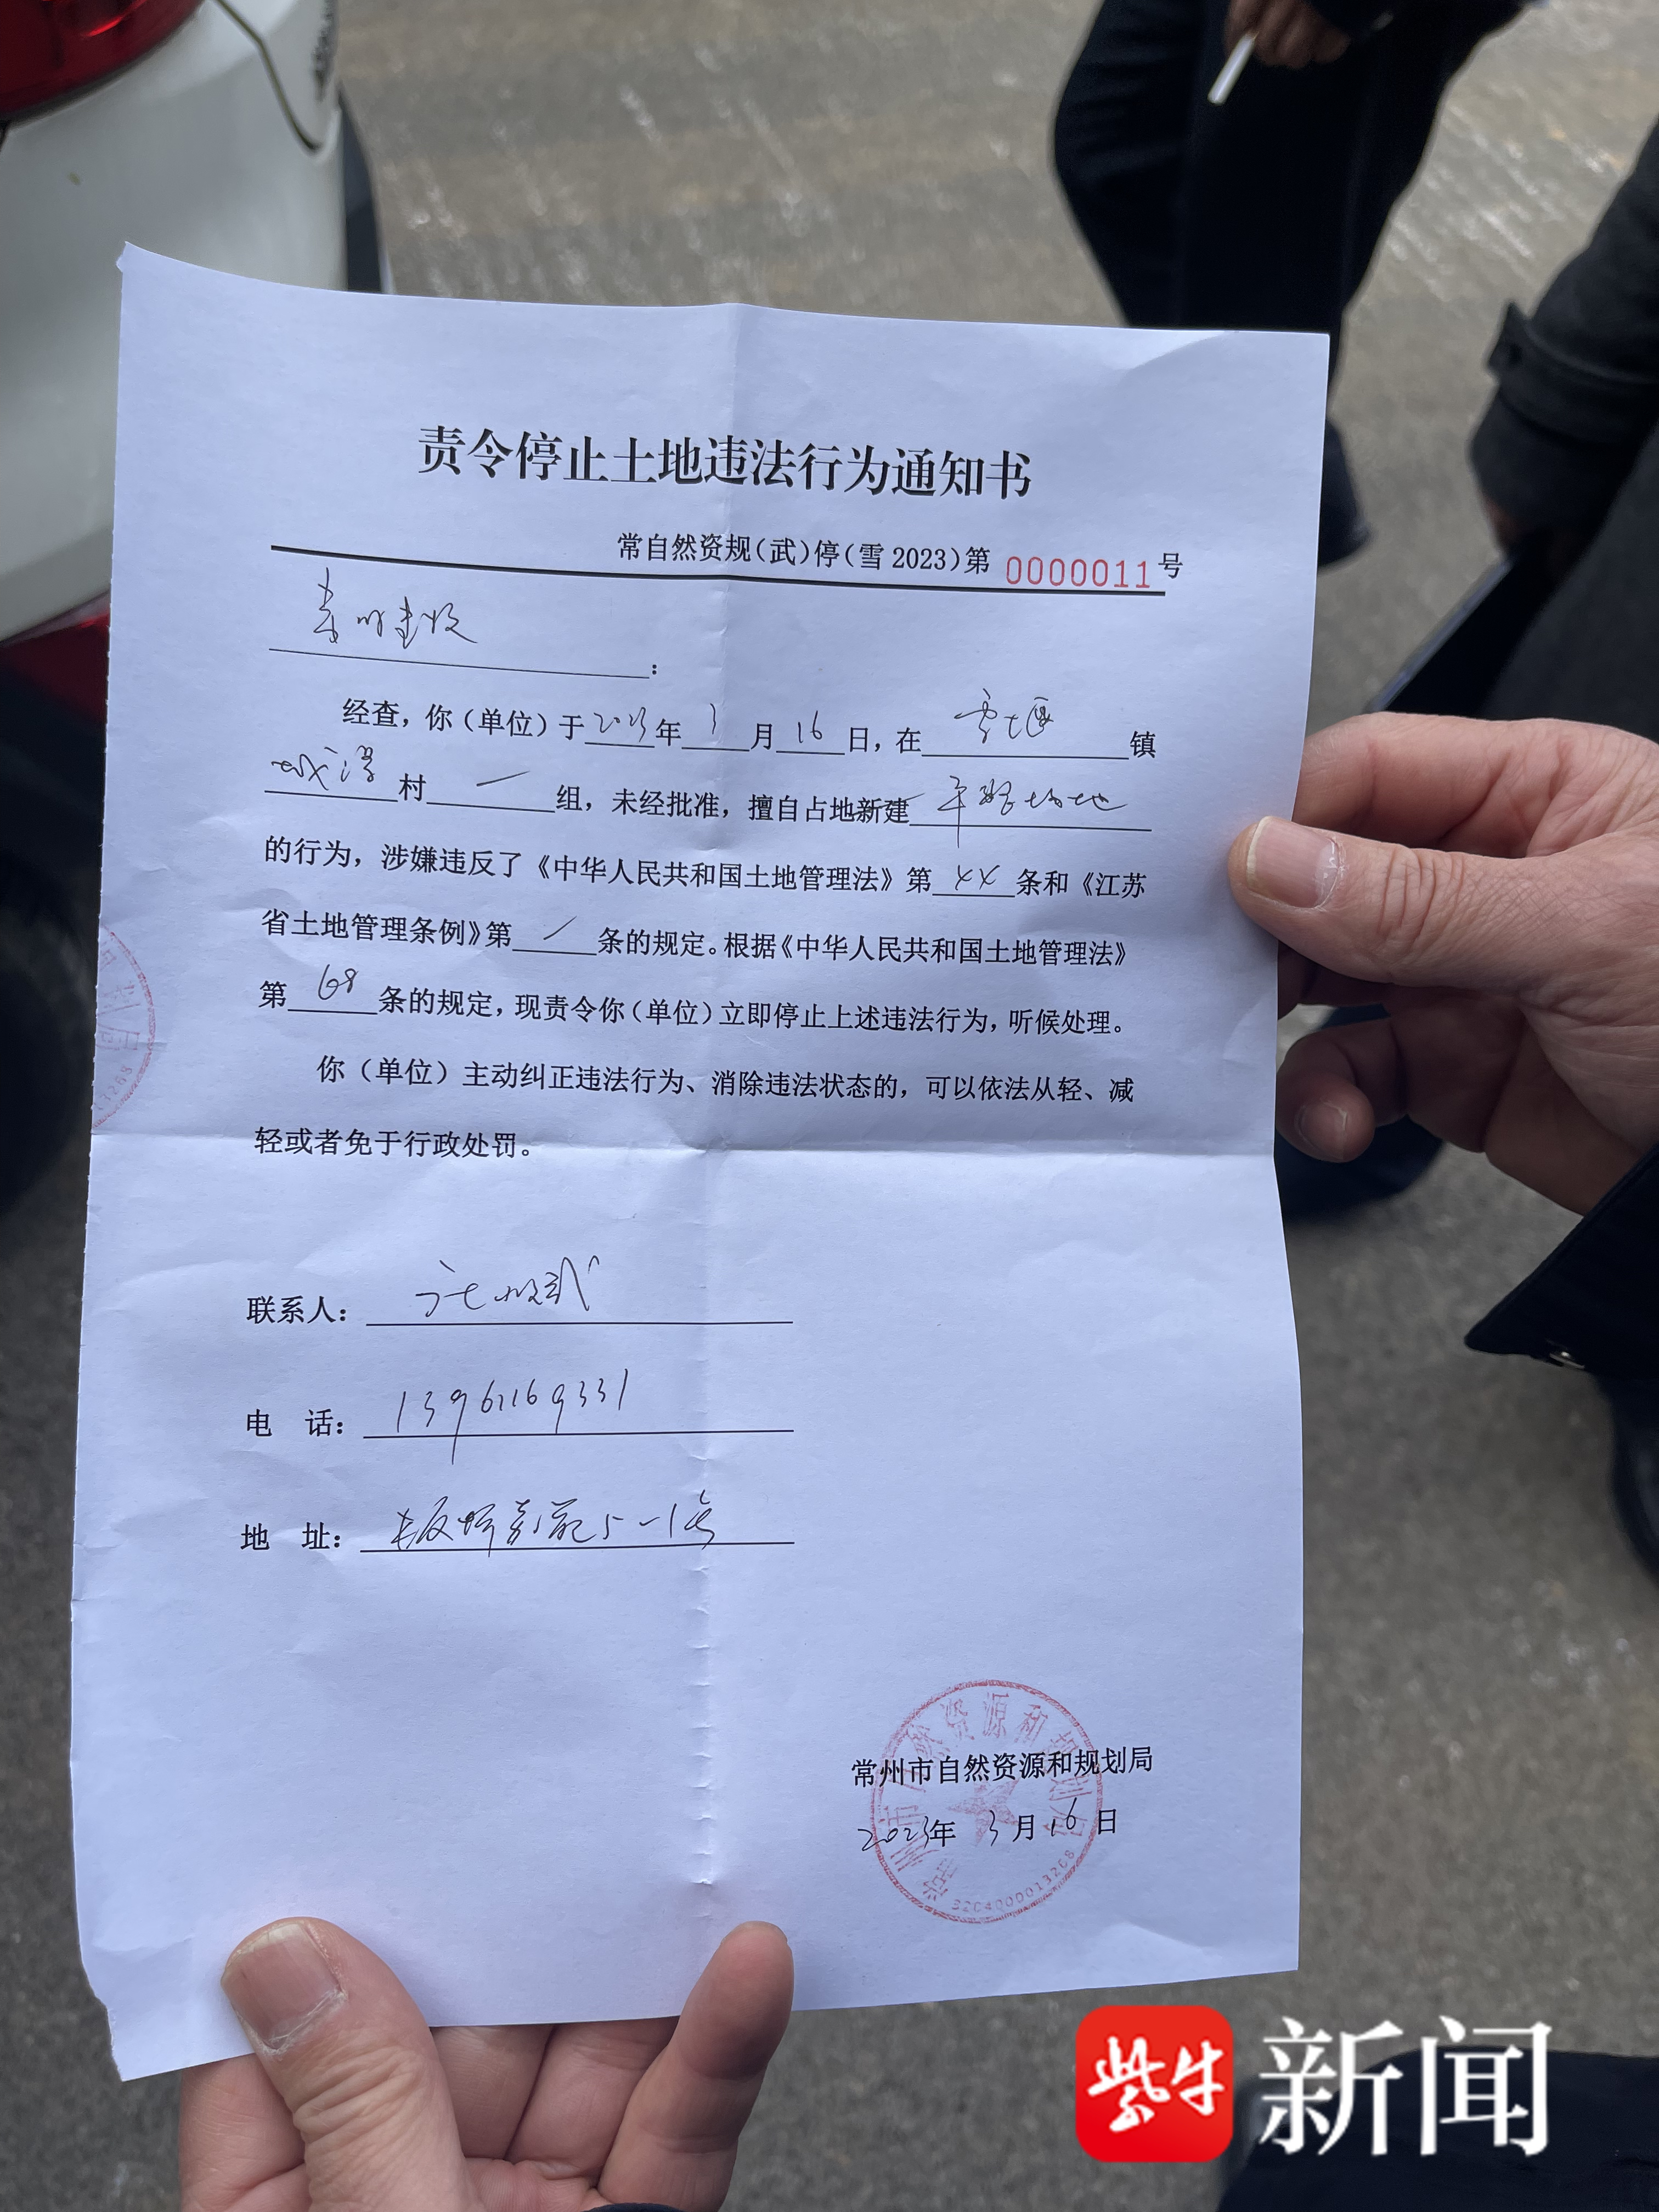 责令停止土地违法行为通知书
常自然资规(武)停(雪2023)第 0000011号
:
经查,你(单位)于2023年3月16日,在雪堰镇
城湾村一组,未经批准,擅自占地新建平整场地
的行为,涉嫌违反了《中华人民共和国土地管理法》第××条和《江苏
省土地管理条例》第/条的规定。根据《中华人民共和国土地管理法》
第68条的规定,现责令你(单位)立即停止上述违法行为,听候处理。
你(单位)主动纠正违法行为、消除违法状态的,可以依法从轻、减
轻或者免于行政处罚。
联系人:
电 话:13961169331
地 址:5-1号
常州市自然资源和规划局
2023年3月16日
3204000013268
紫牛新闻